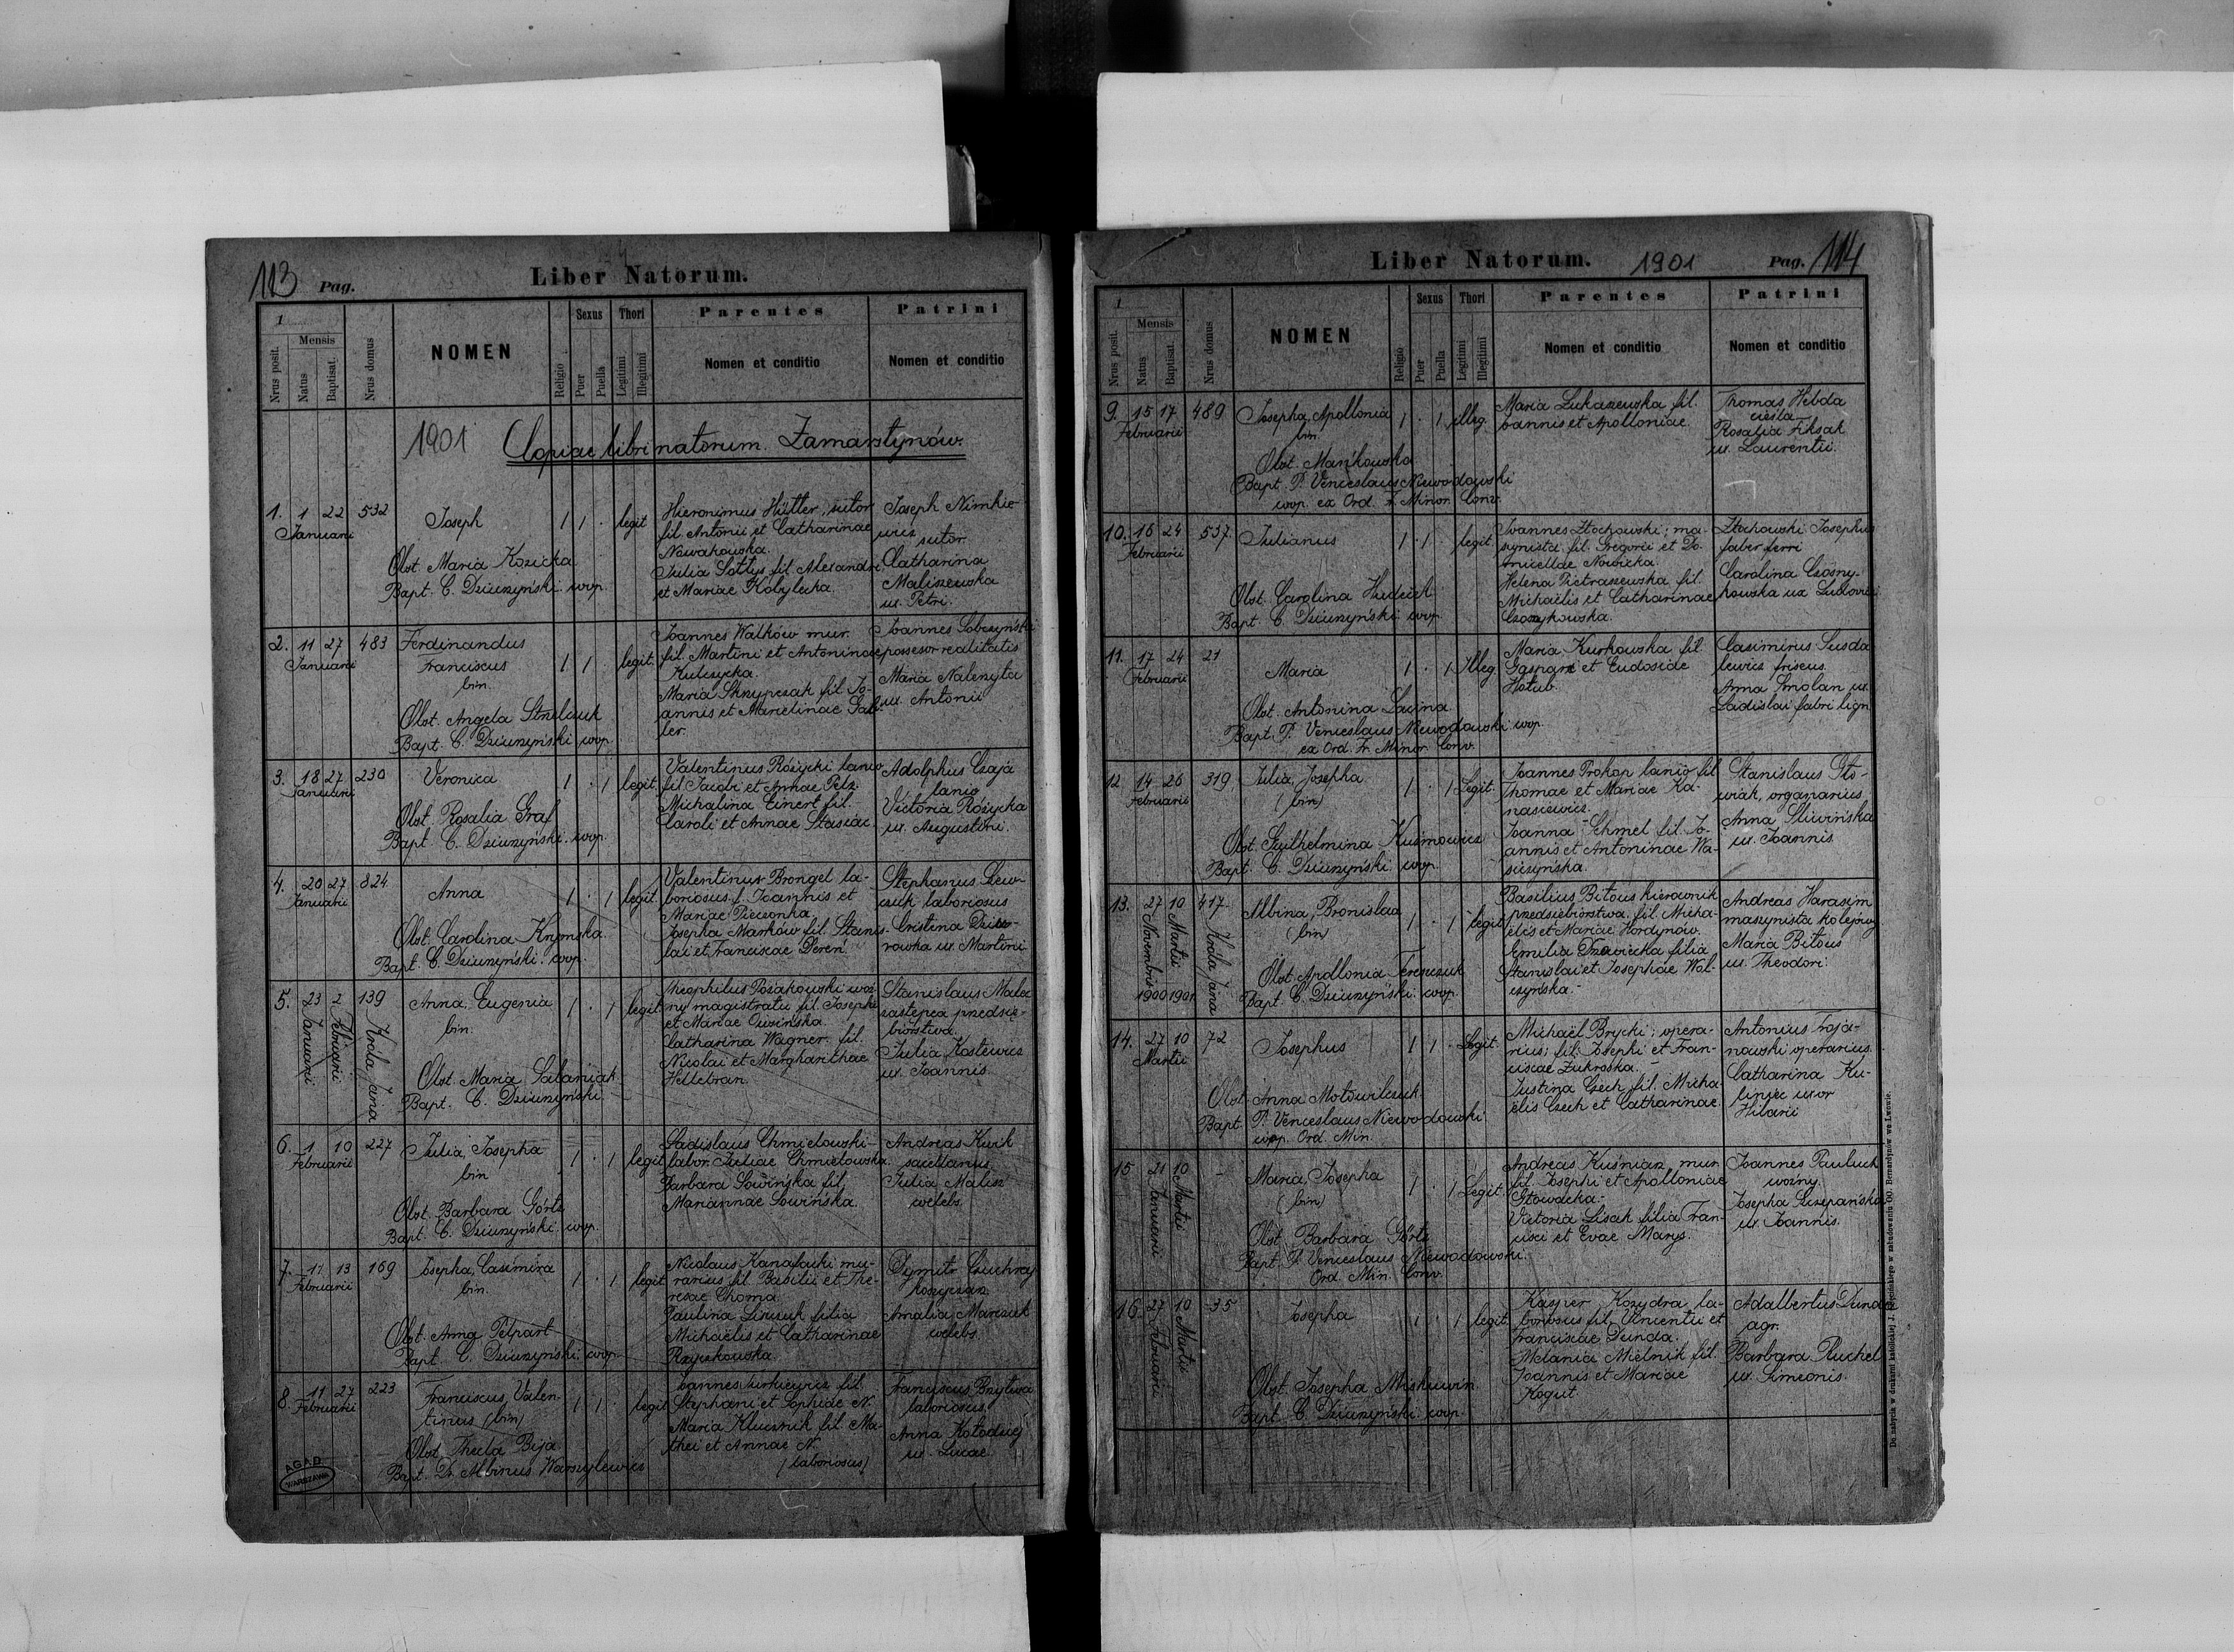 113 Pag.
Liber Natorum.
1
Nrus posit.
Mensis
Natus
Baptisat.
Nrus domus
NOMEN
Religio
Sexus
Puer
Puella
Thori
Legitimi
Illegitimi
Parentes
Nomen et conditio
Patrini
Nomen et conditio
1901 Copiae libri natorum. Zamarstynów.
1. 1 22 532
Januarii
Joseph
1 1 . legit
Obst. Maria Kozicka
Bapt. C. Dziurzyński coop.
Hieronimus Hütter, sutor
fil. Antonii et Catharinae
Nowakowska.
Julia Sołtys fil. Alexandri
et Mariae Kobylecka.
Joseph Nimkie-
wicz
sutor.
Catharina
Maliszewska
ux. Petri.
2. 11 27 483
Januarii
Ferdinandus
Franciscus
bin.
1 1 . legit.
Obst. Angela Strelczuk
Bapt. C. Dziurzyński coop.
Joannes Walków mur.
fil. Martini et Antoninae
Kulczycka.
Maria Skrypczak fil. Jo-
annis et Marcelinae Gal-
ler.
Joannes Sobczyński
possesor realitatis
Maria Nalezyta
ux. Antonii
3. 18 27 230
Januarii
Veronica
1 . 1 legit.
Obst. Rosalia Graf
Bapt. C. Dziurzyński coop.
Valentinus Różycki lanio
fil. Jacobi et Annae Pelz
Michalina Einert fil.
Caroli et Annae Stasiac.
Adolphus Czaja
lanio
Victoria Różycka
ux. Augustini.
4. 20 27 824
Januarii
Anna
1 . 1 legit.
Obst. Carolina Krynska
Bapt. C. Dziurzyński. coop.
Valentinus Brongel la-
boriosus f. Joannis et
Mariae Pieczonka
Josepha Marków fil. Stanis-
lai et Franciscae Dereń.
Stephanus Szew-
czuk laboriosus
Cristina
ux. Martini
5. 23 2 139
Januarii
Februarii
Krola Jana
Anna, Eugenia
bin.
1 . 1 legit.
Obst. Maria
Bapt. C. Dziurzyński.
Theophilus Pożakowski woź-
ny magistratu fil. Josephi
et Mariae Owsińska.
Catharina Wagner fil.
Nicolai et Margharithae
Hellebran.
Stanislaus Malec
zastępca przedsię-
biorstwa.
Julia Kostewicz
ux. Joannis
6. 1 10 227
Februarii
Julia, Josepha
bin
1 . 1 legit
Obst. Barbara Görtz
Bapt. C. Dziurzyński. coop.
Ladislaus Chmielowski
labor. Juliae Chmielowska.
Barbara Sowińska fil.
Mariannae Sowińska.
Andreas Kwik
sacellanus
Julia Malisz
coelebs.
7. 11 13 169
Februarii
Josepha, Casimira
bin.
1 . 1 legit
Obst. Anna Pelpart
Bapt. C. Dziurzyński. coop.
Nicolaus Kanafacki mu-
rarius fil. Basilii et The-
resae Choma.
Paulina filia
Michaëlis et Catharinae
Rzyczkowska.
Dymitr Czuchraj
koszyczarz
Amalia Marczuk
coelebs.
8. 11 27 223
Februarii
Franciscus, Valen-
tinus (bin)
1 1 . legit
Obst. Thecla Bija
Bapt. Dr. Albinus Warszylewicz
Joannes Jurkiewicz fil.
Stephani et Sophiae N.
Maria Klucznik fil. Ma-
thei et Annae N.
(laboriosus)
Franciscus Brzytwa
laboriosus.
Anna Kołodziej
ux. Lucae.
A.G.A.D.
WARSZAWA
Liber Natorum. 1901 Pag. 114
1
Nrus posit.
Mensis
Natus
Baptisat.
Nrus domus
NOMEN
Religio
Sexus
Puer
Puella
Thori
Legitimi
Illegitimi
Parentes
Nomen et conditio
Patrini
Nomen et conditio
9. 15 17 489
Februarii
Josepha, Apollonia
bin.
1 . 1 illeg.
Obst. Mańkowska
Bapt. P. Venceslaus Niewodowski
coop. ex Ord. F. Minor. Conv.
Maria Łukaszewska fil.
Joannis et Apolloniae.
Thomas Hebda
cieśla
Rosalia Fiksak
ux. Laurentii.
10. 16 24 537
Februarii
Julianus
1 . 1 . legit.
Obst. Carolina Hudecik
Bapt. C. Dziurzyński coop.
Joannes Złochowski; ma-
szynista fil. Gregorii et Do-
micellae Nowicka.
Helena Pietraszewska fil.
Michaëlis et Catharinae
Czosnykowska.
Złochowski Josephus
faber ferri
Carolina Czosny-
kowska ux Ludovici
11. 17 24 21
Februarii
Maria
1 . 1 Illeg.
Obst. Antonina Lacina.
Bapt. P. Venceslaus Niewodowski coop.
ex Ord. Fr. Minor. Conv.
Maria Kurkowska fil.
Gaspari et Eudosiae
Hołub.
Casimirus Susda
lewicz friseus.
Anna Smolan ux.
Ladislai fabri lign.
12. 14 26 319
Februarii
Julia, Josepha
(bin)
1 . 1 Legit.
Obst. Guilhelmina Kuśmowicz
Bapt. C. Dziurzyński coop.
Joannes Prokop lanio fil.
Thomae et Mariae Ka-
nasiewicz.
Joanna Schmel fil. Jo-
annis et Antoninae Wa-
siczyńska.
Stanislaus Sto-
wiak, organarius
Anna Sliwińska
ux. Joannis.
13. 27 10 417
Novembris
Martii
Krola Jana
1900 1901
Albina, Bronislaa
(bin)
1 . 1 legit
Obst. Apollonia Tereszczuk
Bapt. C. Dziurzyński. coop.
Basilius Bitous kierownik
przedsiębiorstwa. fil. Micha-
ëlis et Mariae Hordynów.
Emilia filia
Stanislai et Josephae Wol-
czyńska.
Andreas Harasim
maszynista kolejowy
Maria Bitous
ux. Theodori.
14. 27 10 72
Martii
Josephus
1 1 . Legit.
Obst. Anna Mołowilczuk
Bapt. P. Venceslaus Niewodowski
coop. Ord. Min.
Michaël Brycki; opera-
rius; fil. Josephi et Fran-
ciscae Żukrowska.
Justina Czech fil. Micha
ëlis Czech et Catharinae.
Antonius Troja-
nowski operarius.
Catharina Ku-
liniec uxor
Hilarii
15 21 10 -
Januarii
Martii
Maria, Josepha
(bin)
1 . 1 Legit.
Obst. Barbara Görtz
Bapt. P. Venceslaus Niewodowski.
Ord. Min. Conv.
Andreas Kuśniarz mur.
fil. Josephi et Apolloniae
Głowacka.
Victoria Lisak filia Fran-
cisci et Evae Marys.
Joannes Pauluch
woźny.
Josepha Szczepańska
ux. Joannis.
16. 27 10 35
Februarii
Martii
Josepha
1 . 1 legit
Obst. Josepha Miskiewicz
Bapt. C. Dziurzyński coop.
Kasper Kozydra la-
boriosus fil. Vincentii et
Franciscae Dunda.
Melania Mielnik fil.
Joannis et Mariae
Kogut.
Adalbertus Dunda
agr.
Barbara Ruchel
ux. Simeonis.